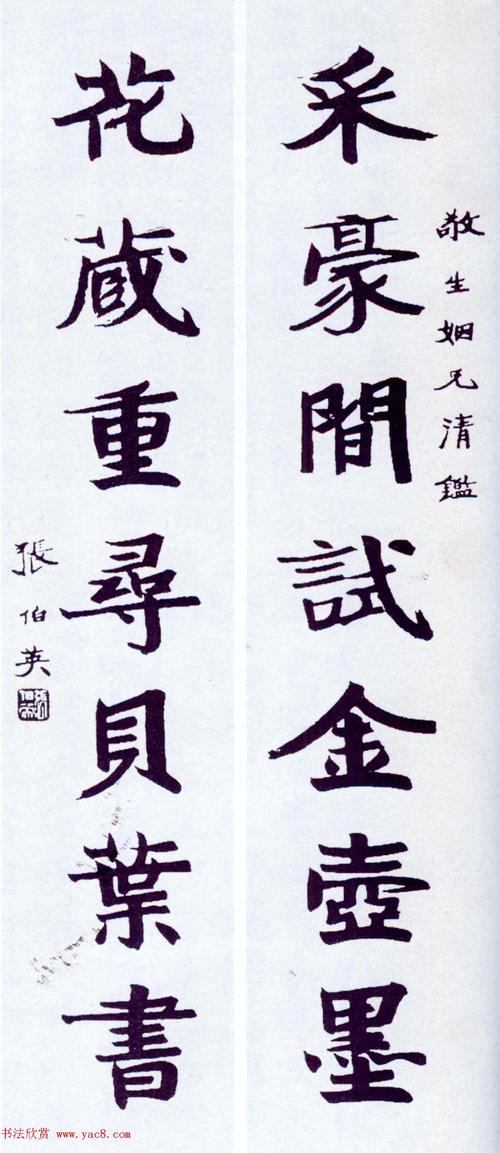 敬生姻兄清鑑
采豪間試金壺墨
花蔵重尋貝葉書
張伯英
书法欣赏 www.yac8.com